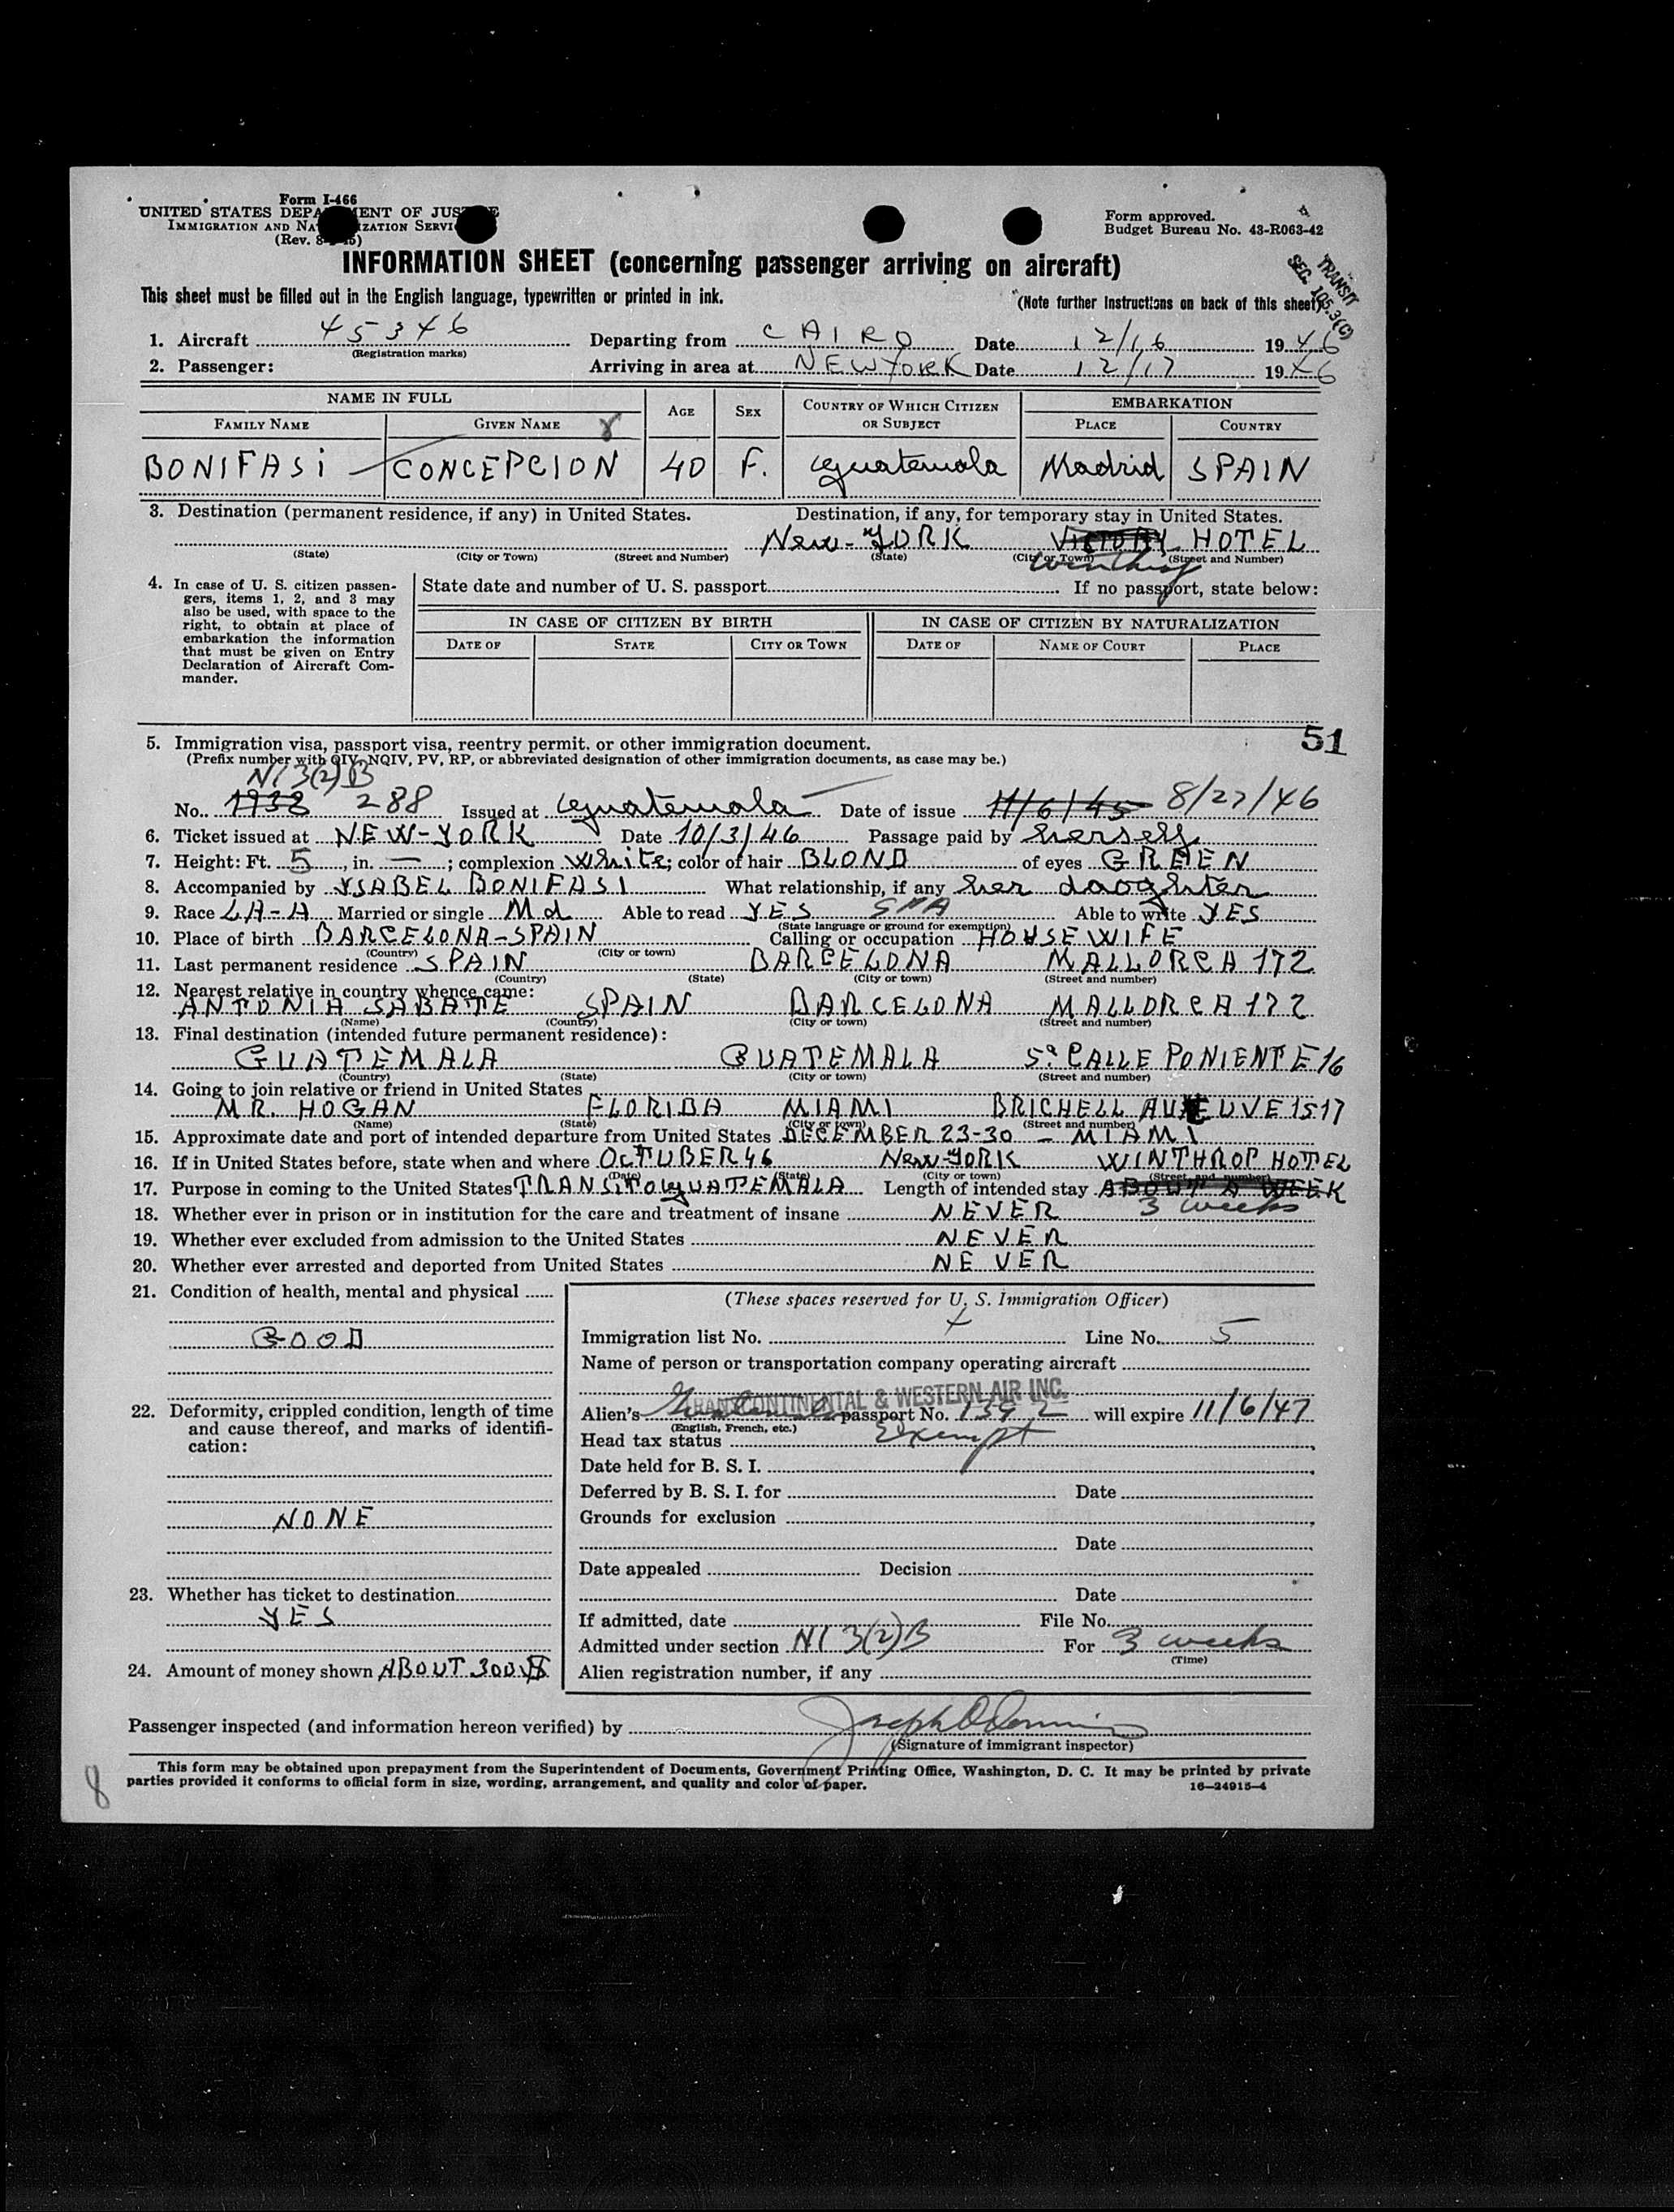 Form I-466
UNITED STATES DEPARTMENT OF JUSTICE
IMMIGRATION AND NATURALIZATION SERVICE
(Rev. 8- -45)
Form approved.
Budget Bureau No. 43-R063-42
INFORMATION SHEET (concerning passenger arriving on aircraft)
TRANSIT
SEC. 105.3(C)
This sheet must be filled out in the English language, typewritten or printed in ink. (Note further instructions on back of this sheet)
1. Aircraft 45346 Departing from CAIRO Date 12/16 1946
(Registration marks)
2. Passenger: Arriving in area at NEW YORK Date 12/17 1946
NAME IN FULL AGE SEX COUNTRY OF WHICH CITIZEN OR SUBJECT EMBARKATION
FAMILY NAME GIVEN NAME PLACE COUNTRY
BONIFASI CONCEPCION 40 F. Guatemala Madrid SPAIN
3. Destination (permanent residence, if any) in United States. Destination, if any, for temporary stay in United States.
New-YORK VICTORY HOTEL
(State) (City or Town) (Street and Number) (State) (City or Town) (Street and Number)
Winthrop
4. In case of U. S. citizen passengers, items 1, 2, and 3 may also be used, with space to the right, to obtain at place of embarkation the information that must be given on Entry Declaration of Aircraft Commander.
State date and number of U. S. passport If no passport, state below:
IN CASE OF CITIZEN BY BIRTH IN CASE OF CITIZEN BY NATURALIZATION
DATE OF STATE CITY OR TOWN DATE OF NAME OF COURT PLACE
51
5. Immigration visa, passport visa, reentry permit, or other immigration document.
(Prefix number with QIV, NQIV, PV, RP, or abbreviated designation of other immigration documents, as case may be.)
NI 3(2)B
No. 1938 288 Issued at Guatemala Date of issue 11/6/45 8/27/46
6. Ticket issued at NEW-YORK Date 10/3/46 Passage paid by herself
7. Height: Ft. 5, in. —; complexion White; color of hair BLOND of eyes GREEN
8. Accompanied by YSABEL BONIFASI What relationship, if any her daoghter
9. Race LA-A Married or single Md Able to read YES SPA Able to write YES
(State language or ground for exemption)
10. Place of birth BARCELONA-SPAIN Calling or occupation HOUSEWIFE
(Country) (City or town)
11. Last permanent residence SPAIN BARCELONA MALLORCA 172
(Country) (State) (City or town) (Street and number)
12. Nearest relative in country whence came:
ANTONIA SABATE SPAIN BARCELONA MALLORCA 172
(Name) (Country) (City or town) (Street and number)
13. Final destination (intended future permanent residence):
GUATEMALA GUATEMALA 5ª CALLE PONIENTE 16
(Country) (State) (City or town) (Street and number)
14. Going to join relative or friend in United States
MR. HOGAN FLORIDA MIAMI BRICHELL AUEUVE 1517
(Name) (State) (City or town) (Street and number)
15. Approximate date and port of intended departure from United States DECEMBER 23-30 - MIAMI
16. If in United States before, state when and where OCTUBER 46 New-YORK WINTHROP HOTEL
(Date) (State) (City or town) (Street and number)
17. Purpose in coming to the United States TRANSITO GUATEMALA Length of intended stay ABOUT A WEEK
3 weeks
18. Whether ever in prison or in institution for the care and treatment of insane NEVER
19. Whether ever excluded from admission to the United States NEVER
20. Whether ever arrested and deported from United States NEVER
21. Condition of health, mental and physical
GOOD
22. Deformity, crippled condition, length of time and cause thereof, and marks of identification:
NONE
23. Whether has ticket to destination
YES
24. Amount of money shown ABOUT 300 $
(These spaces reserved for U. S. Immigration Officer)
Immigration list No. Line No. 5
Name of person or transportation company operating aircraft
TRANSCONTINENTAL & WESTERN AIR INC.
Alien's Guatemala passport No. 1392 will expire 11/6/47
(English, French, etc.)
Head tax status Exempt
Date held for B. S. I.
Deferred by B. S. I. for Date
Grounds for exclusion
Date
Date appealed Decision
Date
If admitted, date File No.
Admitted under section NI 3(2)B For 3 weeks
(Time)
Alien registration number, if any
Passenger inspected (and information hereon verified) by
(Signature of immigrant inspector)
This form may be obtained upon prepayment from the Superintendent of Documents, Government Printing Office, Washington, D. C. It may be printed by private
parties provided it conforms to official form in size, wording, arrangement, and quality and color of paper. 16—24915-4
8